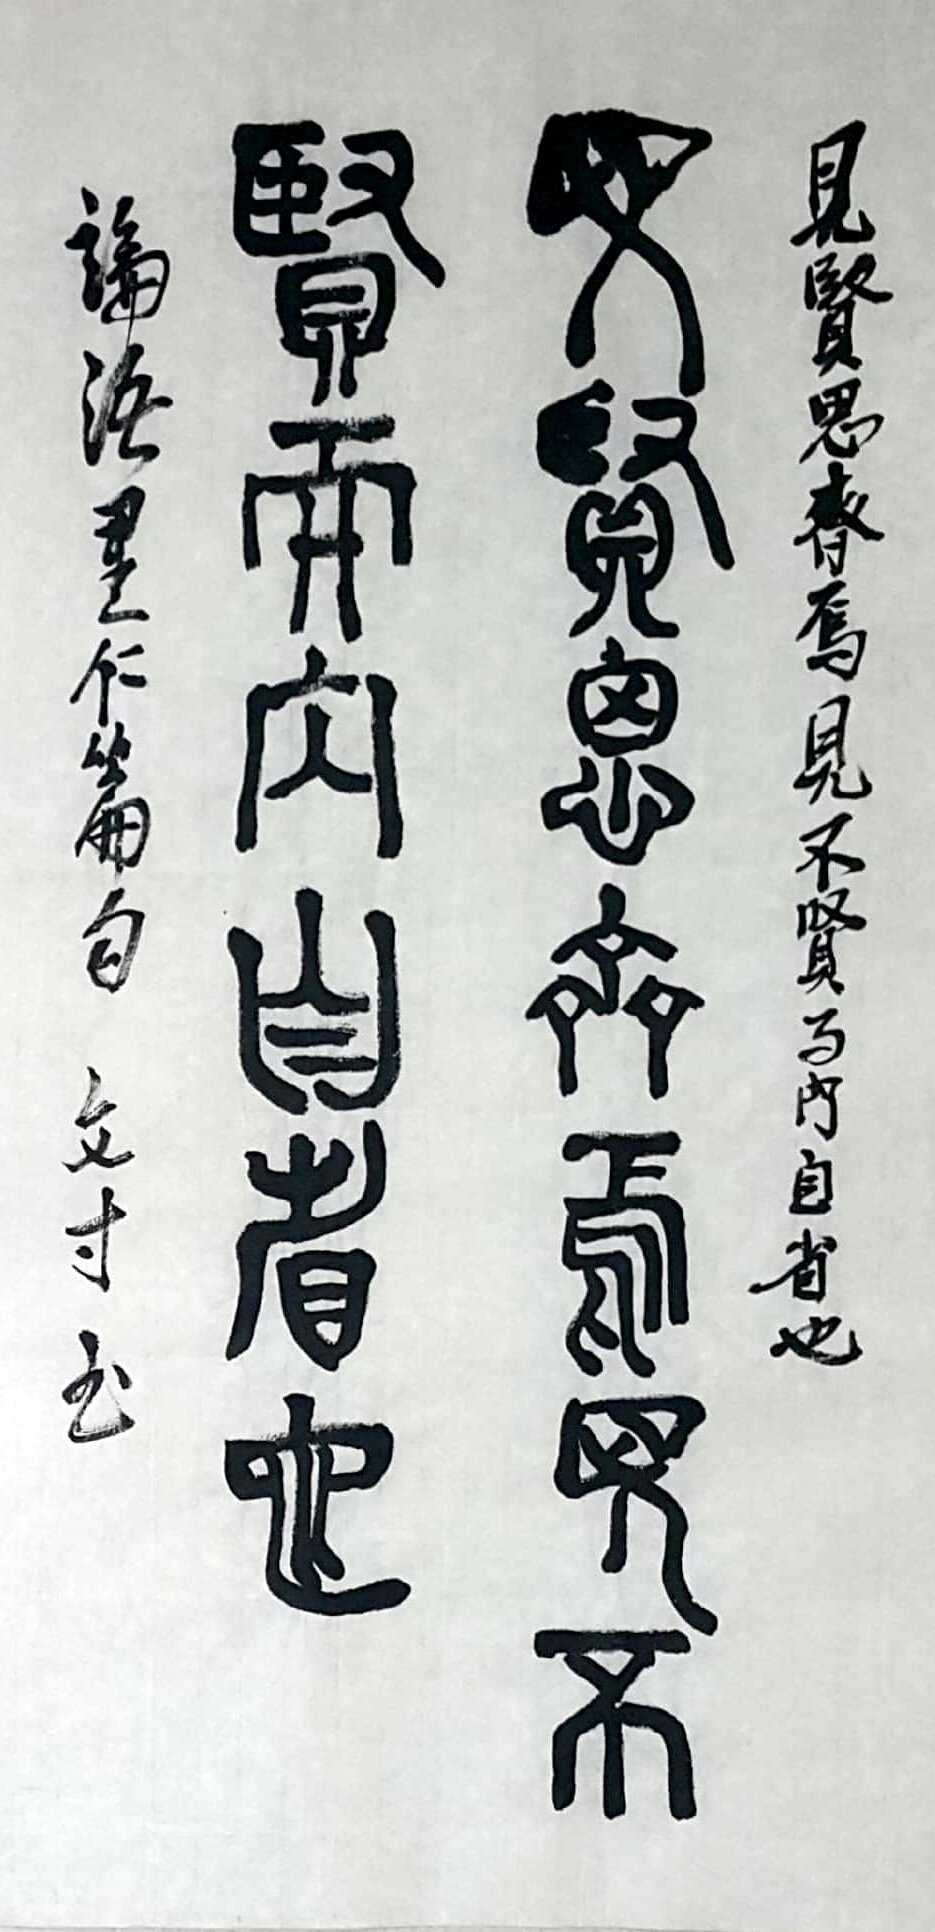 見賢思齊焉見不賢而內自省也
見賢思齊焉見不
賢而內自省也
論語里仁篇句 文寸书